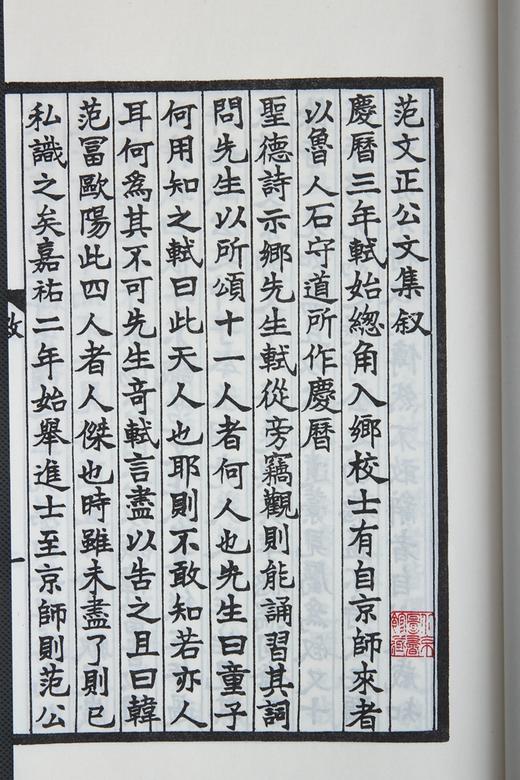 范文正公文集叙
慶曆三年軾始緫角入鄉校士有自京師來者
以魯人石守道所作慶曆
聖德詩示鄉先生軾從旁竊觀則能誦習其詞
問先生以所頌十一人者何人也先生曰童子
何用知之軾曰此天人也耶則不敢知若亦人
耳何爲其不可先生奇軾言盡以告之且曰韓
范冨歐陽此四人者人傑也時雖未盡了則已
私識之矣嘉祐二年始舉進士至京師則范公
一